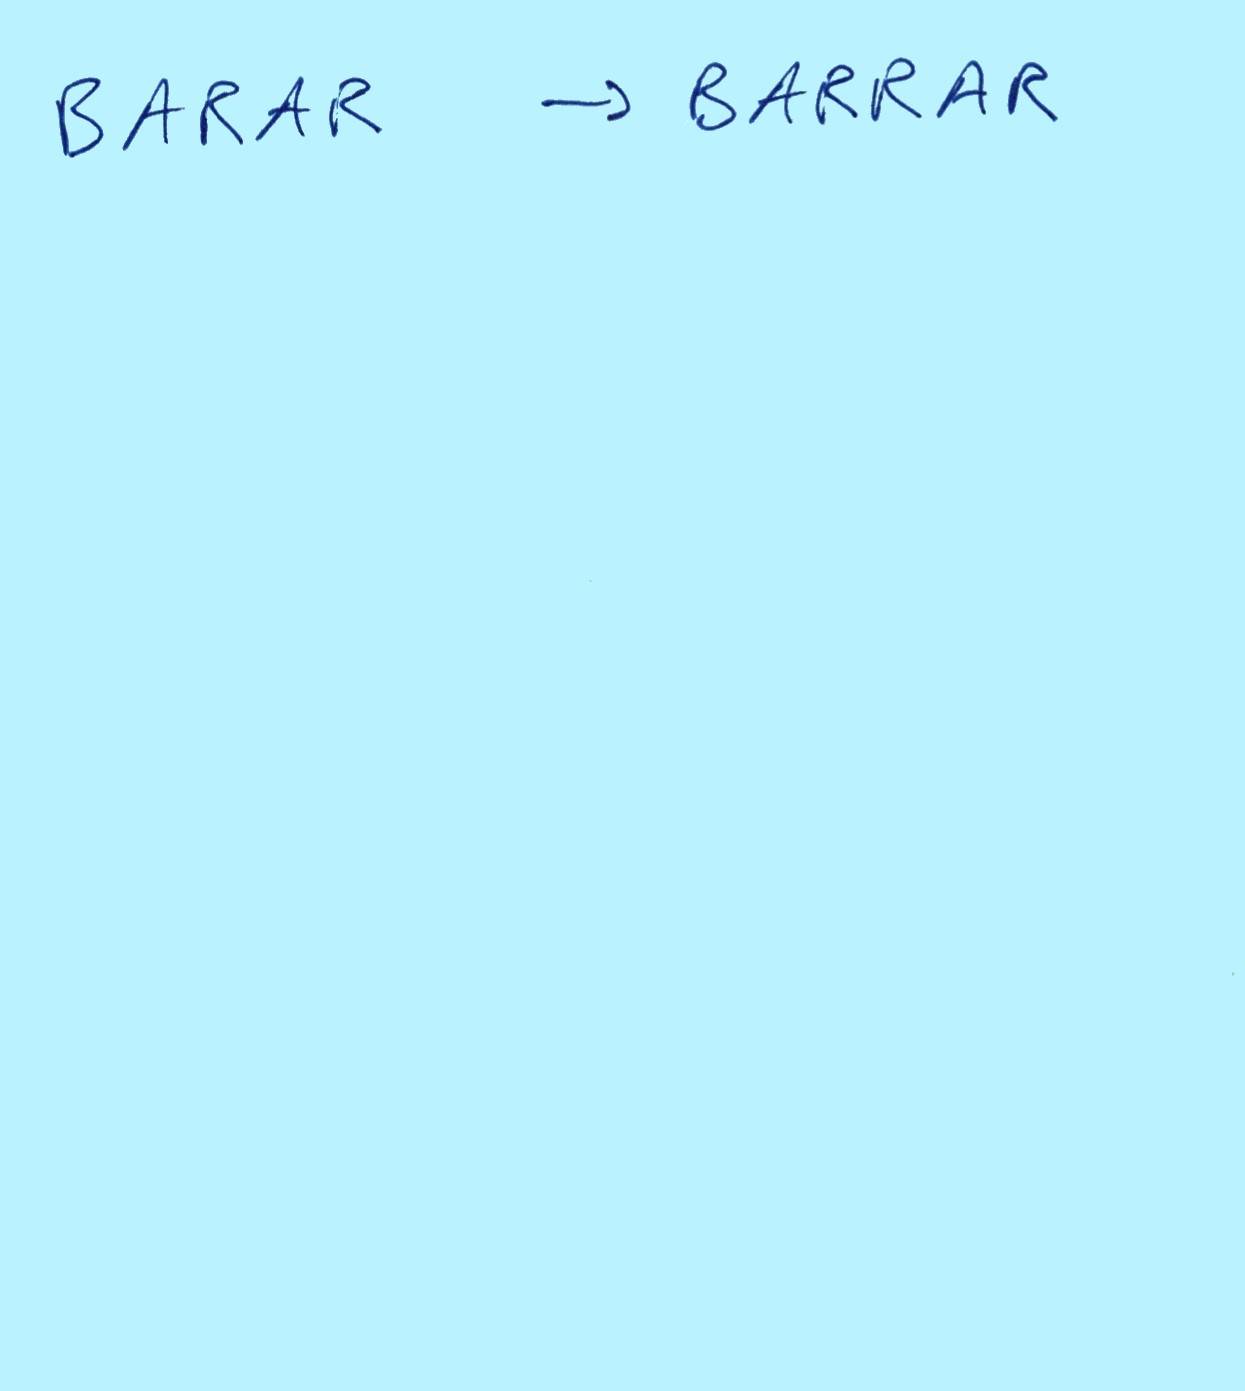 BARAR → BARRAR